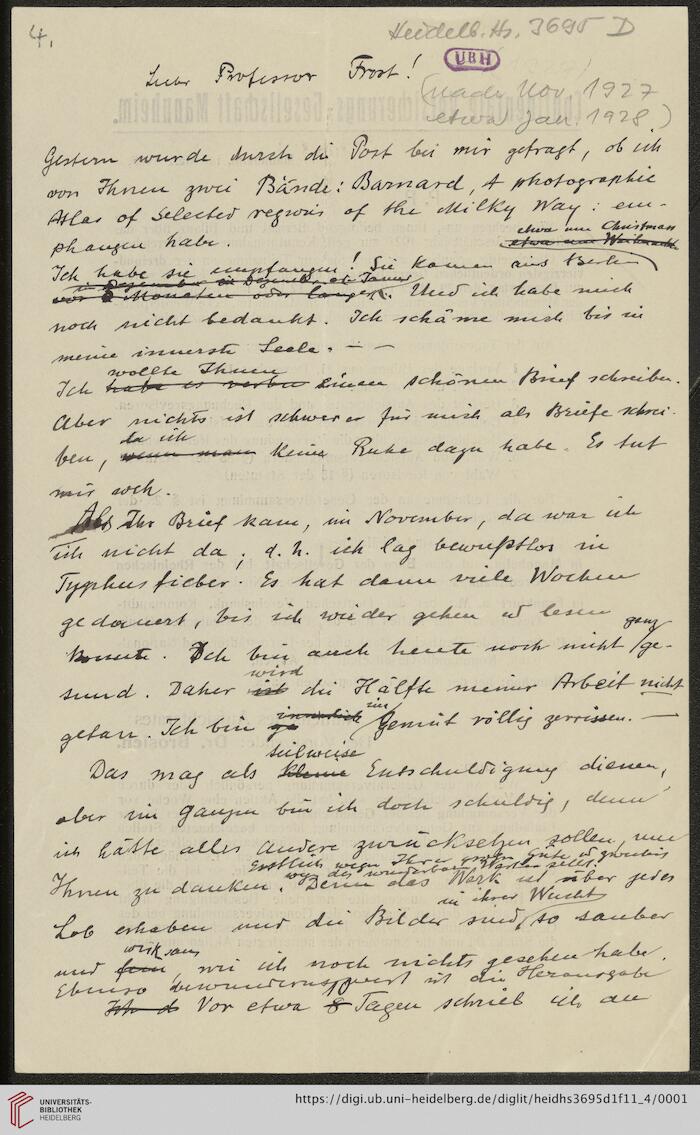 4.
Heidelb. Hs. 3695 D
UBH
(nach Nov. 1927
etwa Jan. 1928.)
Lieber Professor Frost!
Gestern wurde durch die Post bei mir gefragt, ob ich
von Ihnen zwei Bände: Barnard, A photographic
Atlas of selected regions of the Milky Way: em-
phangen habe.
etwa um Christmass
etwa um Weihnacht
Ich habe sie empfangen! Sie kamen aus Berlin
im Dezember
vor 2 Monaten oder länger. Und ich habe mich
noch nicht bedankt. Ich schäme mich bis in
meine innerste Seele. — —
wollte Ihnen
Ich habe es einen schönen Brief schreiben.
Aber nichts ist schwerer für mich als Briefe schrei-
da ich
ben, wenn man keine Ruhe dazu habe. Es tut
mir weh.
Als Ihr Brief kam, im November, da war ich
ich nicht da; d. h. ich lag bewußtlos in
Typhusfieber. Es hat dann viele Wochen
gedauert, bis ich wieder gehen u lesen
ganz
konnte. Ich bin auch heute noch nicht ge-
wird
sund. Daher ist die Hälfte meiner Arbeit nicht
innerlich im
getan. Ich bin Gemüt völlig zerrissen. —
teilweise
Das mag als kleine Entschuldigung dienen,
aber im ganzen bin ich doch schuldig, denn
ich hätte alles andere zurücksetzen sollen, um
Erstlich wegen Ihrer großen Güte u zweitens
wegen des wunderbaren Werkes selbst.
Ihnen zu danken. Denn das Werk ist über jedes
in ihrer Wucht
Lob erhaben und die Bilder sind so sauber
wirksam
und fein, wie ich noch nichts gesehen habe.
Ebenso bewundernswert ist die Herausgabe
Ich Vor etwa 8 Tagen schrieb ich an
UNIVERSITÄTS-
BIBLIOTHEK
HEIDELBERG
https://digi.ub.uni-heidelberg.de/diglit/heidhs3695d1f11_4/0001